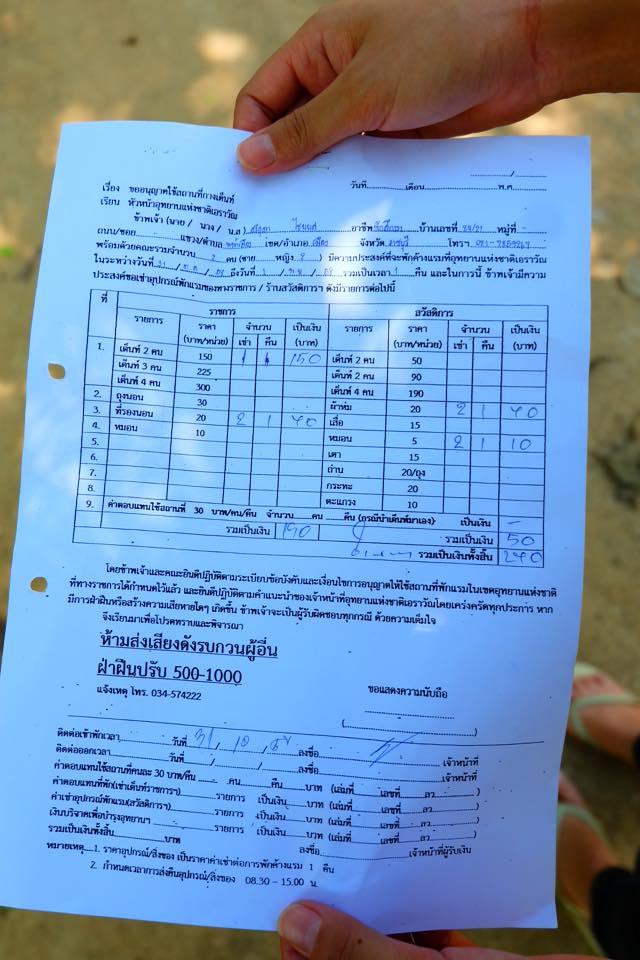 วันที่ เดือน พ.ศ.
เรื่อง ขออนุญาตใช้สถานที่กางเต็นท์
เรียน หัวหน้าอุทยานแห่งชาติเอราวัณ
ข้าพเจ้า (นาย / นาง / น.ส.) อาชีพ บ้านเลขที่ 84/21 หมู่ที่ -
ถนน/ซอย - แขวง/ตำบล เขต/อำเภอ เมือง จังหวัด โทรฯ
พร้อมด้วยคณะรวมจำนวน 2 คน (ชาย หญิง 2 ) มีความประสงค์ที่จะพักค้างแรมที่อุทยานแห่งชาติเอราวัณ
ในระหว่างวันที่ 31 / ต.ค. / 58 ถึงวันที่ 1 / พ.ย. / 58 รวมเป็นเวลา 1 คืน และในการนี้ ข้าพเจ้ามีความ
ประสงค์ขอเช่าอุปกรณ์พักแรมของทางราชการ / ร้านสวัสดิการฯ ดังมีรายการต่อไปนี้
ที่ ราชการ สวัสดิการ
รายการ ราคา (บาท/หน่วย) จำนวน เช่า คืน เป็นเงิน (บาท) รายการ ราคา (บาท/หน่วย) จำนวน เช่า คืน เป็นเงิน (บาท)
1. เต็นท์ 2 คน 150 1 1 150 เต็นท์ 2 คน 50
เต็นท์ 3 คน 225 เต็นท์ 2 คน 90
เต็นท์ 4 คน 300 เต็นท์ 4 คน 190
2. ถุงนอน 30 ผ้าห่ม 20 2 1 40
3. ที่รองนอน 20 2 1 40 เสื่อ 15
4. หมอน 10 หมอน 5 2 1 10
5. เตา 15
6. ถ่าน 20/ถุง
7. กระทะ 20
8. ตะแกรง 10
9. ค่าตอบแทนใช้สถานที่ 30 บาท/คน/คืน จำนวน คน คืน (กรณีนำเต็นท์มาเอง) เป็นเงิน -
รวมเป็นเงิน 190 รวมเป็นเงิน 50
รวมเป็นเงินทั้งสิ้น 240
โดยข้าพเจ้าและคณะยินดีปฏิบัติตามระเบียบข้อบังคับและเงื่อนไขการอนุญาตให้ใช้สถานที่พักแรมในเขตอุทยานแห่งชาติ
ที่ทางราชการได้กำหนดไว้แล้ว และยินดีปฏิบัติตามคำแนะนำของเจ้าหน้าที่อุทยานแห่งชาติเอราวัณโดยเคร่งครัดทุกประการ หาก
มีการฝ่าฝืนหรือสร้างความเสียหายใดๆ เกิดขึ้น ข้าพเจ้าจะเป็นผู้รับผิดชอบทุกกรณี ด้วยความเต็มใจ
จึงเรียนมาเพื่อโปรดทราบและพิจารณา
ห้ามส่งเสียงดังรบกวนผู้อื่น
ฝ่าฝืนปรับ 500-1000
ขอแสดงความนับถือ
แจ้งเหตุ โทร. 034-574222
( )
ติดต่อเข้าพักเวลา วันที่ 31 / 10 / 58 ลงชื่อ เจ้าหน้าที่
ติดต่อออกเวลา วันที่ / / ลงชื่อ เจ้าหน้าที่
ค่าตอบแทนใช้สถานที่คนละ 30 บาท/คืน คน คืน บาท (เล่มที่ เลขที่ ลว )
ค่าตอบแทนที่พัก(เช่าเต็นท์ราชการฯ) รายการ เป็นเงิน บาท (เล่มที่ เลขที่ ลว )
ค่าเช่าอุปกรณ์พักแรม(สวัสดิการฯ) รายการ เป็นเงิน บาท (เล่มที่ เลขที่ ลว )
เงินบริจาคเพื่อบำรุงอุทยานฯ รายการ เป็นเงิน บาท (เล่มที่ เลขที่ ลว )
รวมเป็นเงินทั้งสิ้น บาท ลงชื่อ เจ้าหน้าที่ผู้รับเงิน
หมายเหตุ 1. ราคาอุปกรณ์/สิ่งของ เป็นราคาค่าเช่าต่อการพักค้างแรม 1 คืน
2. กำหนดเวลาการส่งคืนอุปกรณ์/สิ่งของ 08.30 - 15.00 น.